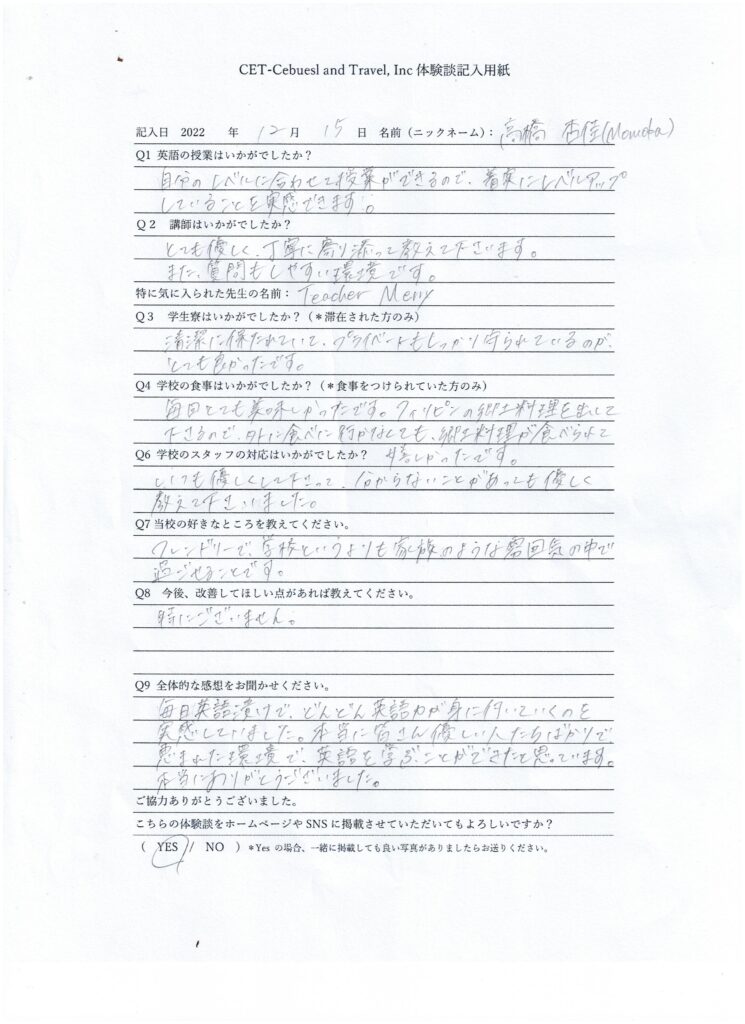 CET-Cebuesl and Travel, Inc 体験談記入用紙
記入日 2022 年 12 月 15 日 名前（ニックネーム）：高橋 杏佳(Momoka)
Q1 英語の授業はいかがでしたか？
自分のレベルに合わせて授業ができるので、着実にレベルアップ
していることを実感できます。
Q２ 講師はいかがでしたか？
とても優しく、丁寧に寄り添って教えて下さいます。
また、質問もしやすい環境です。
特に気に入られた先生の名前：Teacher Merry
Q３ 学生寮はいかがでしたか？（＊滞在された方のみ）
清潔に保たれていて、プライベートもしっかり守られているのが、
とても良かったです。
Q4 学校の食事はいかがでしたか？（＊食事をつけられていた方のみ）
毎回とても美味しかったです。フィリピンの郷土料理を出して
下さるので、外に食べに行かなくても、郷土料理が食べられて
嬉しかったです。
Q6 学校のスタッフの対応はいかがでしたか？
いつも優しくして下さって、分からないことがあっても優しく
教えて下さいました。
Q7 当校の好きなところを教えてください。
フレンドリーで、学校というよりも家族のような雰囲気の中で
過ごせることです。
Q8 今後、改善してほしい点があれば教えてください。
特にございません。
Q9 全体的な感想をお聞かせください。
毎日英語漬けで、どんどん英語力が身に付いていくのを
実感していました。本当に皆さん優しい人たちばかりで、
恵まれた環境で、英語を学ぶことができたと思っています。
本当にありがとうございました。
ご協力ありがとうございました。
こちらの体験談をホームページや SNS に掲載させていただいてもよろしいですか？
（ YES / NO ）＊Yes の場合、一緒に掲載しても良い写真がありましたらお送りください。